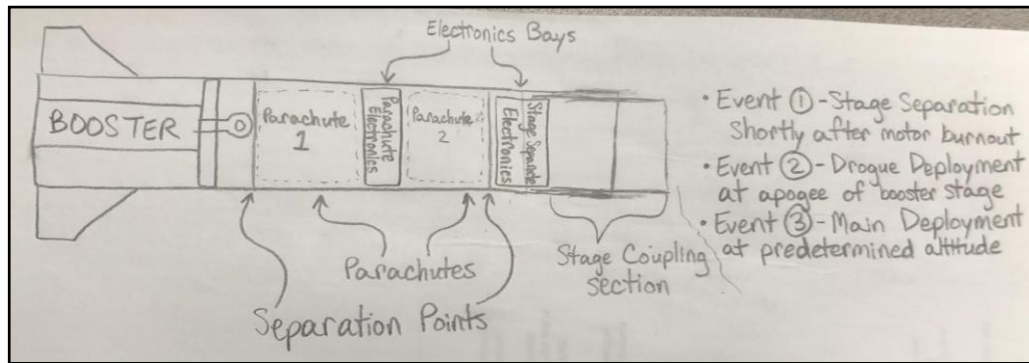 Electronics Bays
BOOSTER
Parachute
1
Parachute
Electronics
Parachute
2
Stage Separate
Electronics
Parachutes
Separation Points
Stage Coupling
section
• Event ① - Stage Separation
Shortly after motor burnout
• Event ② - Drogue Deployment
at apogee of booster stage
• Event ③ - Main Deployment
at predetermined altitude